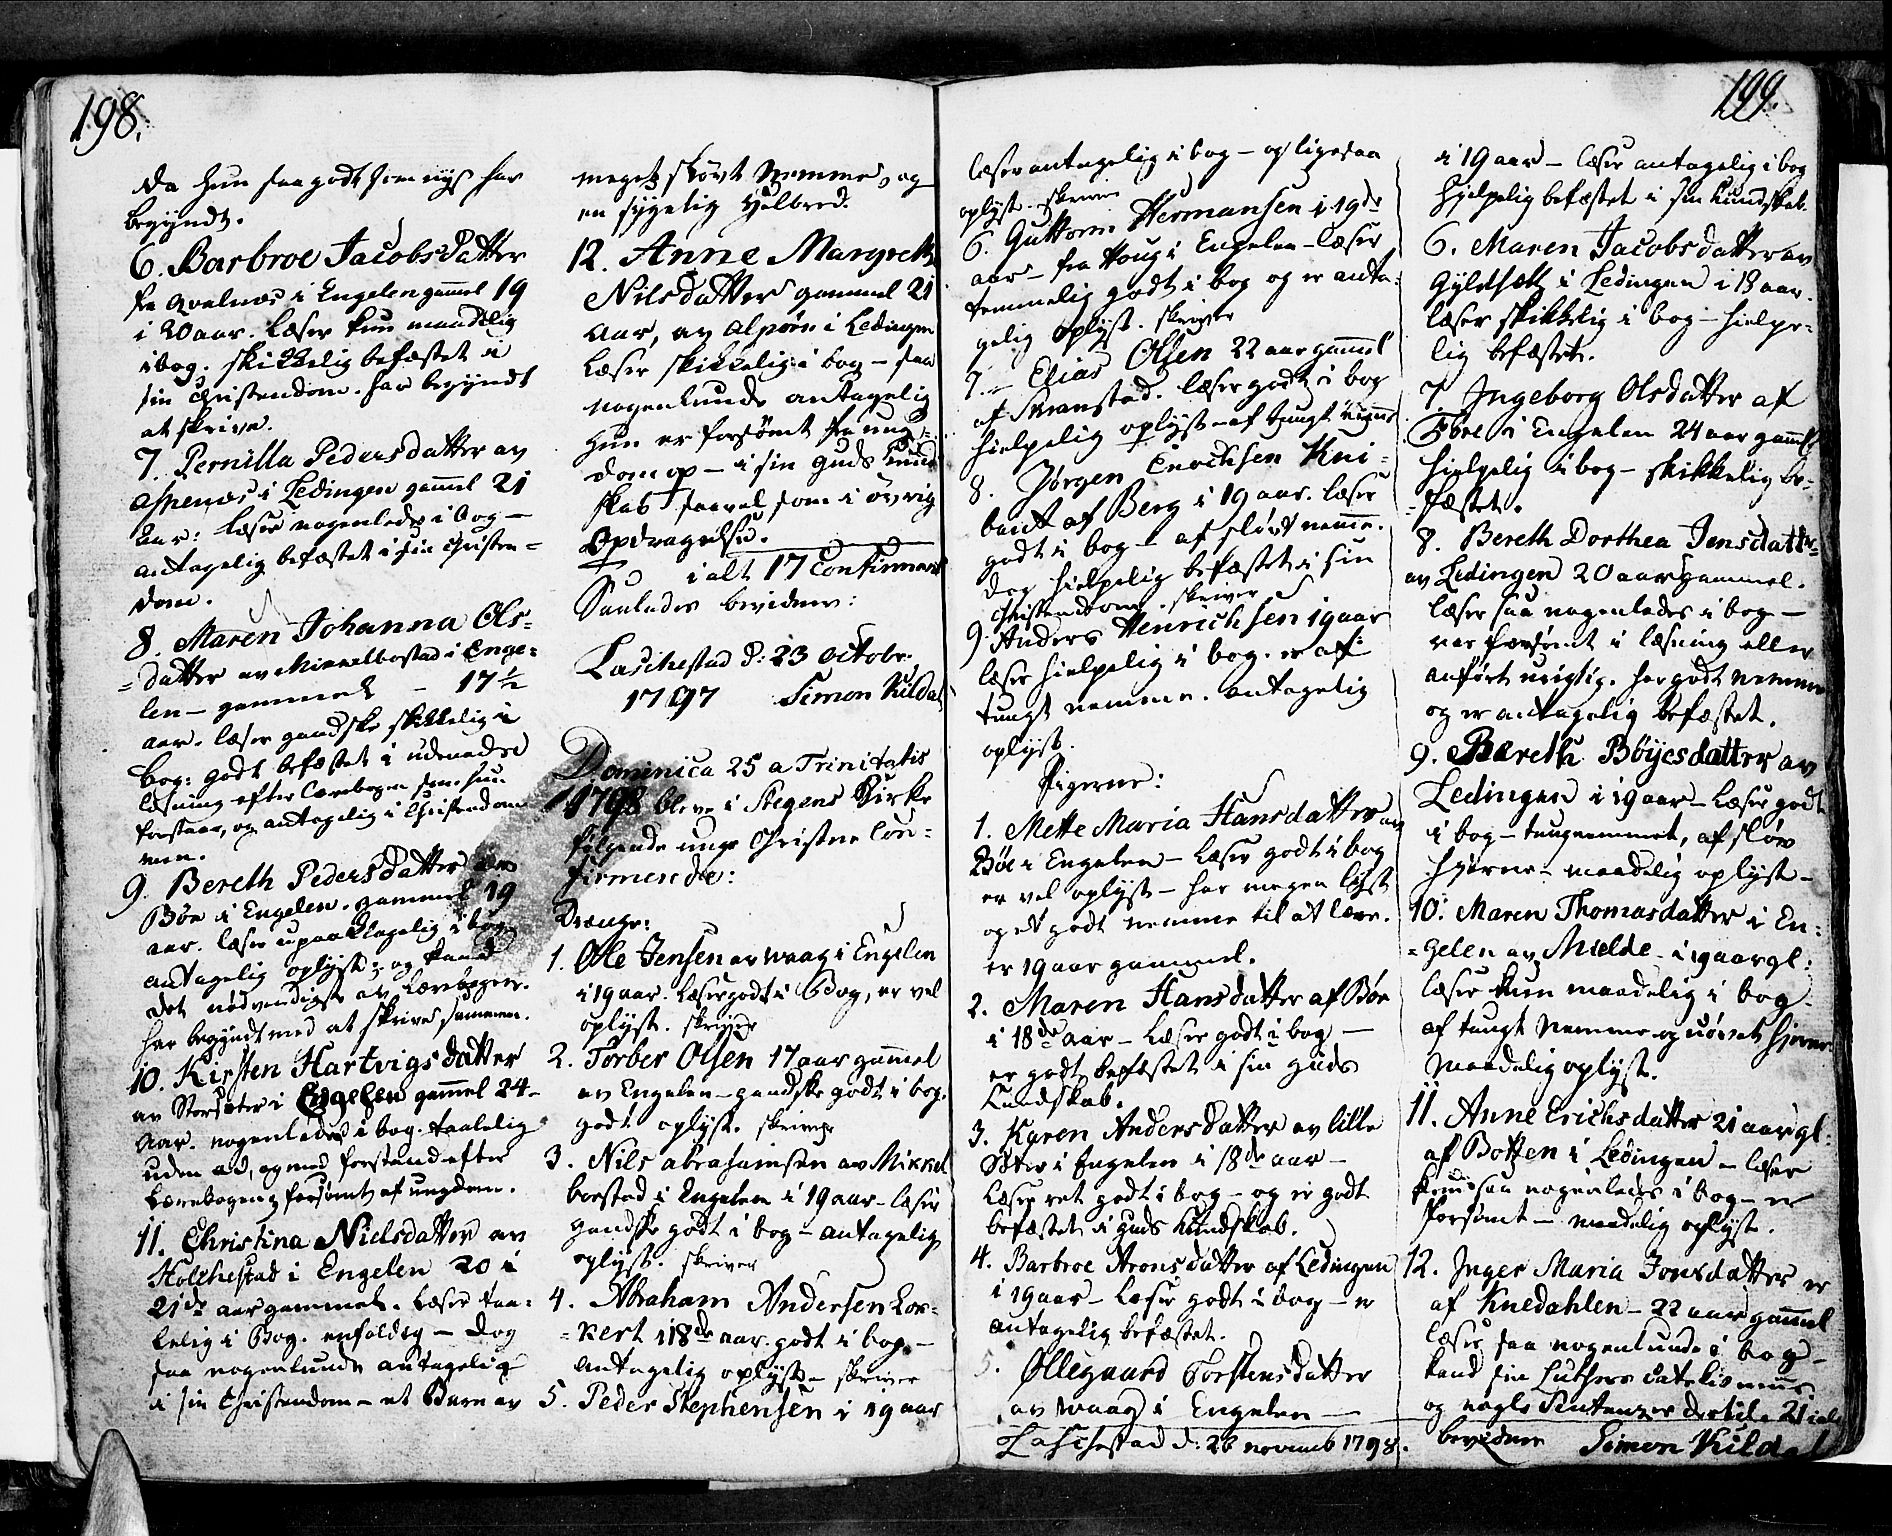 198.
da hun saa godt som nys har
begyndt.
6. Barbroe Jacobsdatter
fra qvalnæs i Engelen gammel 19
i 20 aar. læser kun maadelig
i bog. skikkelig befæstet i
sin Christendom. har begyndt
at skrive.
7. Pernilla Pedersdatter av
Aspenæs i Ledingen gammel 21
aar: læser nogenledes i bog –
antagelig befæstet i sin Christen=
dom.
8. Maren Johanna Ols=
=datter av Mikkelbostad i Enge=
len – gammel – 17½
aar. læser gandske skikkelig i
bog: godt befæstet i udenadse
læsning efter Lærebogen som hun
forstaar, og antagelig i Christendom
men.
9. Bereth Pedersdatter av
Böe i Engelen. gammel 19
aar. læser upaaklagelig i bog
antagelig oplyst; og kand
det nødvendigste av Lærebogen.
har begyndt med at skrive sammen.
10. Kirsten Hartvigsdatter
av Storsæter i Engelen gammel 24
Aar. nogenledes i bog. taalelig
uden ad, og med forstand efter
Lærebogen; forsømt af ungdom.
11. Christina Nielsdatter av
Holchestad i Engelen 20 i
21de aar gammel. læser taa=
lelig i Bog. enfoldig – dog
saa nogenlunde antagelig
i sin Christendom – et Barn av
meget sløvt Nemme, og
en sygelig Helbred.
12. Anne Margreth
Nilsdatter gammel 21
aar, av alpøen i Ledingen
Læser skikkelig i bog – saa
nogenlunde antagelig
hun er forsømt fra ung=
dom op – i sin Guds Kund
skab saavel som i øvrig
Opdragelse.
i alt 17 Confirmant
Saaledes bevidner:
Laschestad d: 23 octobr.
1797 Simon Kildal
Dominica 25 a Trinitatis
1798 bleve i Stegens Kirke
følgende unge Christne Con=
firmerede:
Drænge:
1. Ole Jensen av waag i Engelen
i 19 aar. læser godt i Bog, er vel
oplyst. skriver
2. Torber Olsen 17 aar gammel
av Engelen – gandske godt i bog.
godt oplyst. skriver
3. Nils abrahamsen av Mikkel
borstad i Engelen i 19 aar – læser
gandske godt i bog – antagelig
oplyst. skriver
4. Abraham Andersen Lor=
=kert i 18de aar. godt i bog –
antagelig oplyst – skriver
5. Peder Stephensen i 19 aar
199.
læser antagelig i bog – og ligesaa
oplyst. skriver
6. Guttorm Hermansen i 19de
aar – fra Houg i Engelen – læser
temmelig godt i bog og er anta=
gelig oplyst. skriver
7. – Elias Olsen 22 aar gammel
af Skranstad. læser godt i bog
hielpelig oplyst – af tungt nemme
8. Jørgen Enochsen Kni=
bant af Berg i 19 aar. læser
godt i bog – af sløvt nemme.
dog hielpelig befæstet i sin
Christendom. skriver
9. Anders Henrichsen 19 aar
læser hielpelig i bog. er af
tungt nemme. antagelig
oplyst.
Pigerne:
1. Mette Maria Hansdatter av
Böe i Engelen – læser godt i bog
er vel oplyst – har megen lyst
og et godt nemme til at lære.
er 19 aar gammel.
2. Maren Hansdatter af Böe
i 18de aar – læser godt i bog –
er godt befæstet i sin Guds
Kundskab.
3. Karen Andersdatter av lille
Sæter i Engelen i 18de aar –
Læser ret godt i bog – og er godt
befæstet i Guds Kundskab.
4. Barbroe Aronsdatter af Ledingen
i 19 aar – læser godt i bog – er
antagelig befæstet.
5. Ollegaard Torstensdatter
av Waag i Engelen –
Laschestad d: 26 novemb 1798.
i 19 aar – læser antagelig i bog
hjelpelig befæstet i sin Kundskab.
6. Maren Jacobsdatter av
Gyldsæth i Ledingen i 19 aar.
læser skikkelig i bog – hielpe=
lig befæstet.
7 Ingeborg Olsdatter af
Fôre i Engelen 24 aar gammel
hielpelig i bog – skikkelig be=
=fæstet.
8. Bereth Dorthea Jensdatter
av Ledingen 20 aar gammel.
læser saa nogenledes i bog –
var forsømt i læsning eller
anført urigtig. har godt nemme
og er antagelig befæstet.
9. Bereth Böyesdatter av
Ledingen i 19 aar – læser godt
i bog – tungnemmet, af sløv
hjerne – maadelig oplyst –
10. Maren Thomasdatter i En=
=gelen av Mielde – i 19 aar gl:
læser kun maadelig i bog –
af tungt Nemme og uøvet hjerne
maadelig oplyst.
11. Anne Erichsdatter 21 aar gl.
af Botten i Ledingen – læser
kun saa nogenledes i bog – er
forsømt – maadelig oplyst.
12. Inger Maria Jonsdatter er
af Knedahlen – 22 aar gammel
læser saa nogenlunde i bog –
kand sin Luthers Catekismus
og nogle Sentenzer dertil. 21 ialt
bevidner Simon Kildal